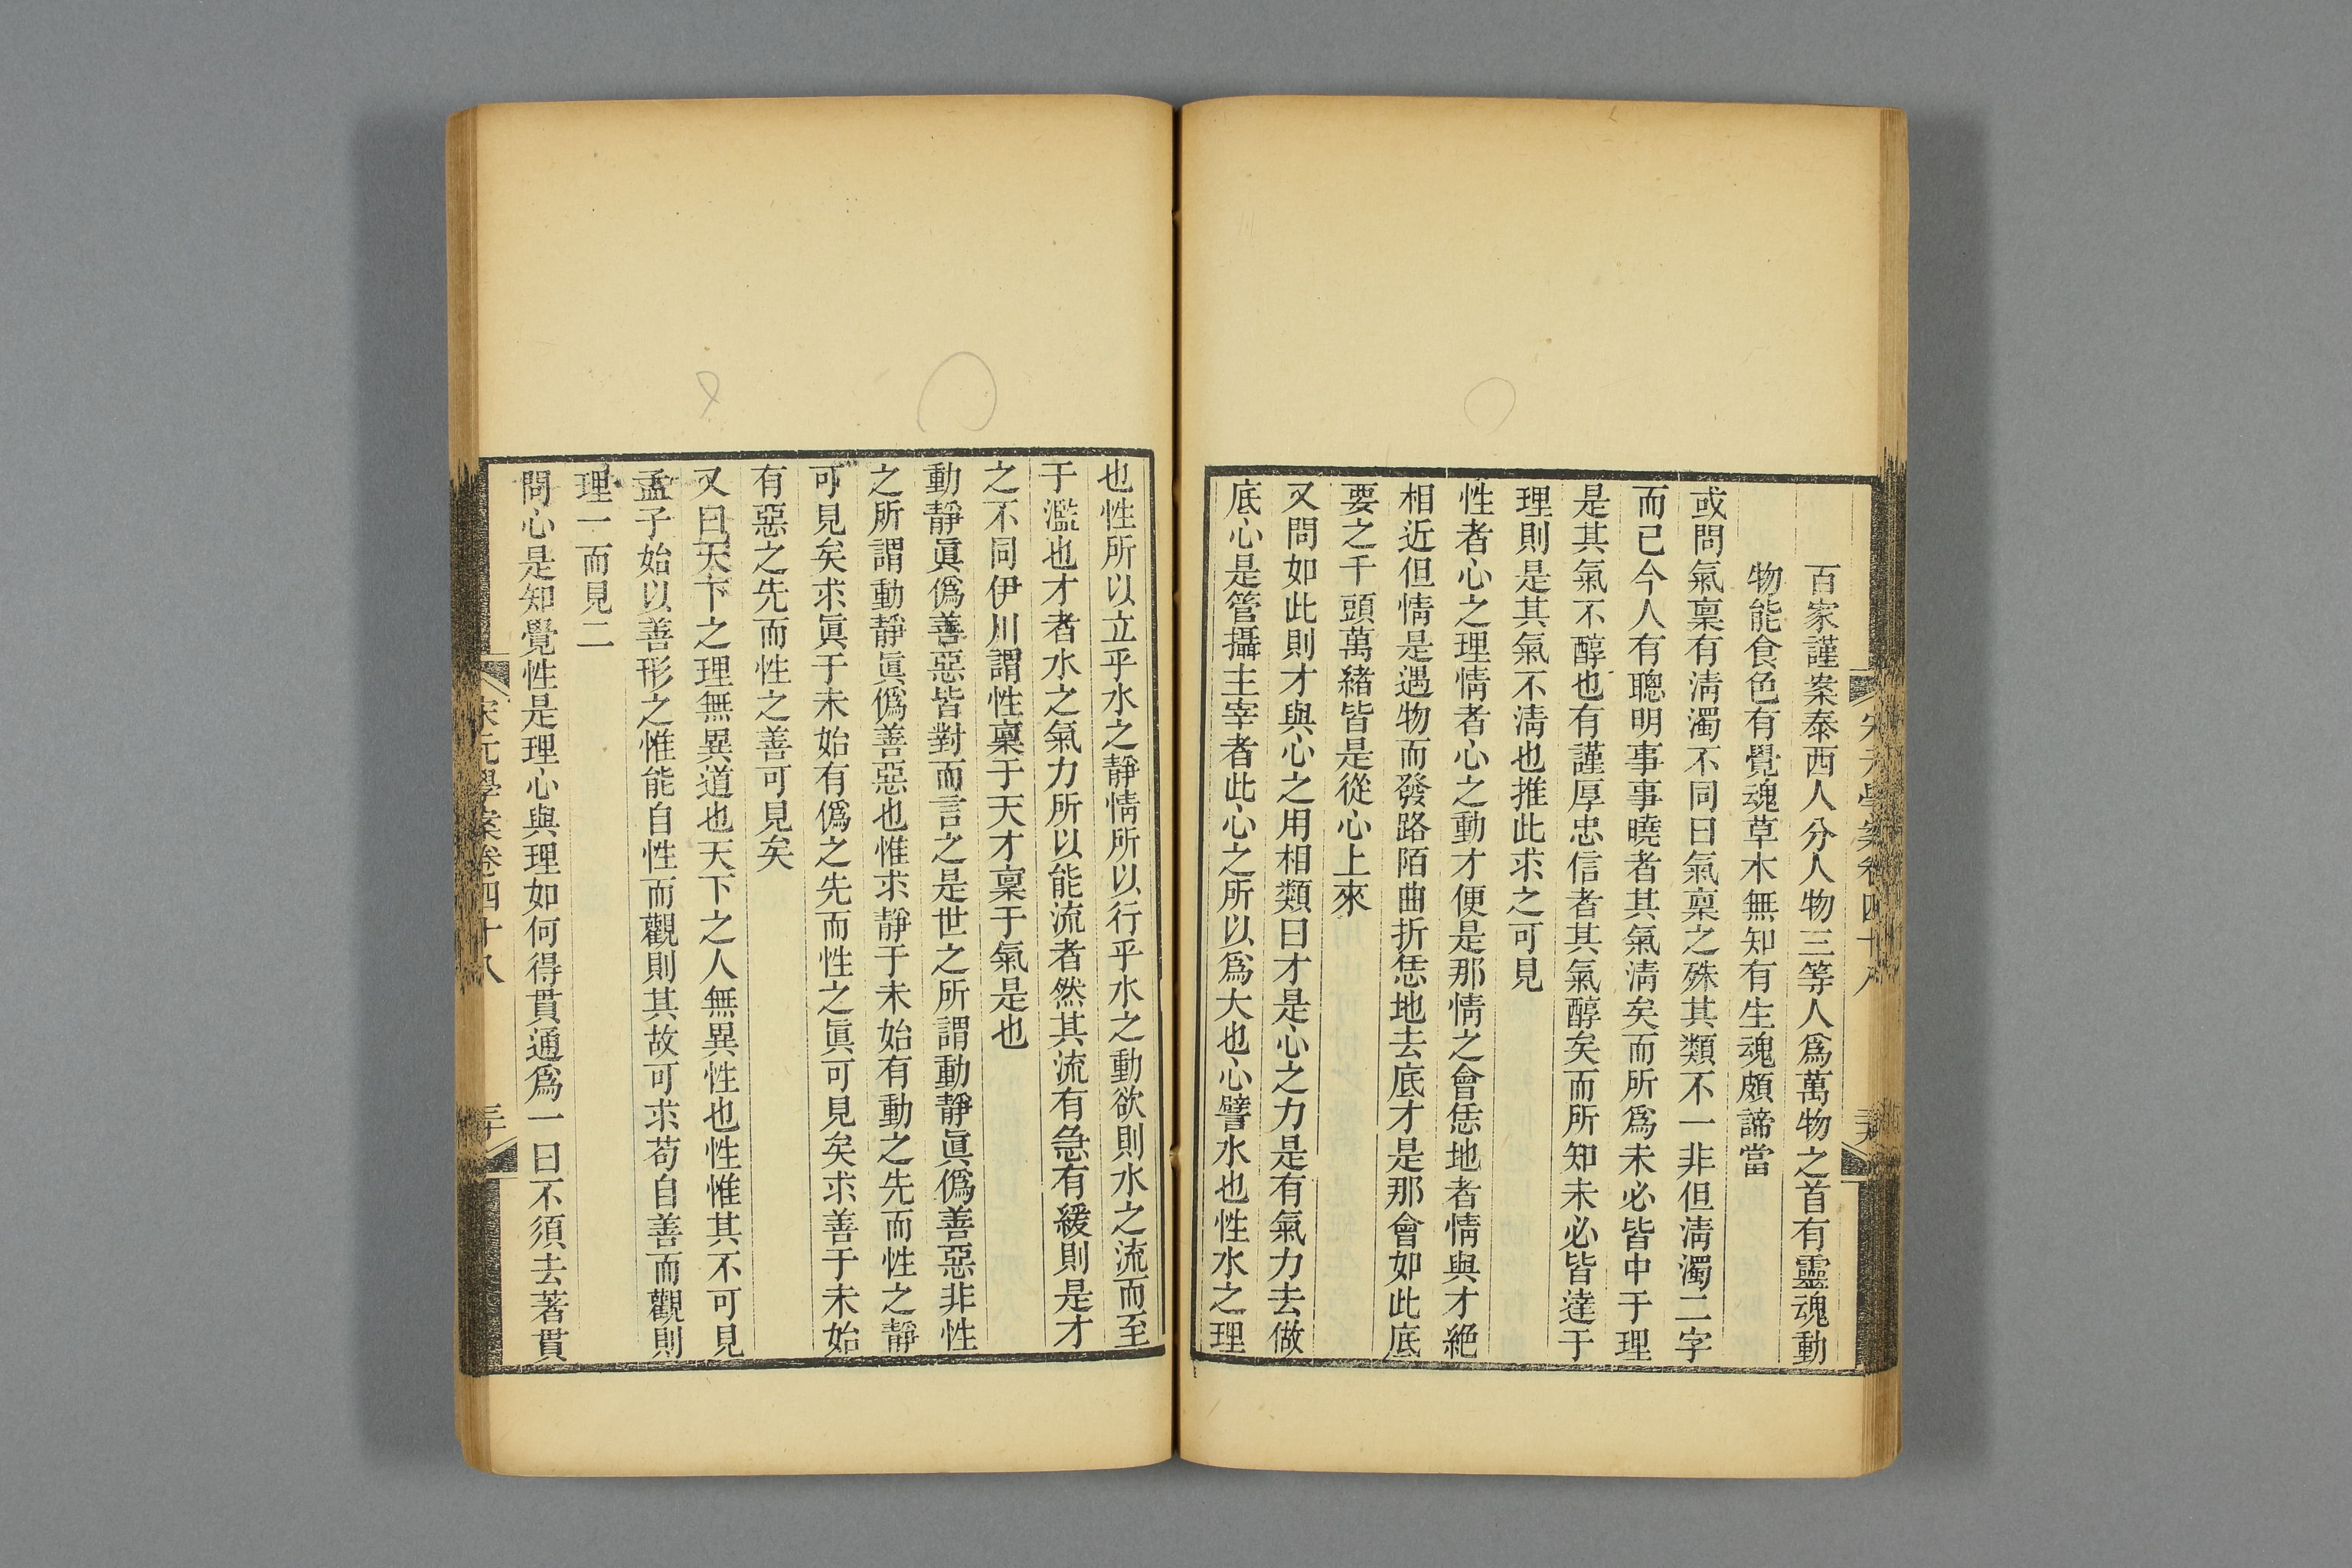 百家謹案泰西人分人物三等人爲萬物之首有靈魂動
物能食色有覺魂草木無知有生魂頗諦當
或問氣稟有淸濁不同曰氣稟之殊其類不一非但淸濁二字
而已今人有聰明事事曉者其氣淸矣而所爲未必皆中于理
是其氣不醇也有謹厚忠信者其氣醇矣而所知未必皆達于
理則是其氣不淸也推此求之可見
性者心之理情者心之動才便是那情之會恁地者情與才絕
相近但情是遇物而發路陌曲折恁地去底才是那會如此底
要之千頭萬緒皆是從心上來
又問如此則才與心之用相類曰才是心之力是有氣力去做
底心是管攝主宰者此心之所以爲大也心譬水也性水之理
也性所以立乎水之靜情所以行乎水之動欲則水之流而至
于濫也才者水之氣力所以能流者然其流有急有緩則是才
之不同伊川謂性稟于天才稟于氣是也
動靜眞僞善惡皆對而言之是世之所謂動靜眞僞善惡非性
之所謂動靜眞僞善惡也惟求靜于未始有動之先而性之靜
可見矣求眞于未始有僞之先而性之眞可見矣求善于未始
有惡之先而性之善可見矣
又曰天下之理無異道也天下之人無異性也性惟其不可見
孟子始以善形之惟能自性而觀則其故可求苟自善而觀則
理一而見二
問心是知覺性是理心與理如何得貫通爲一曰不須去著貫
宋元學案卷四十八